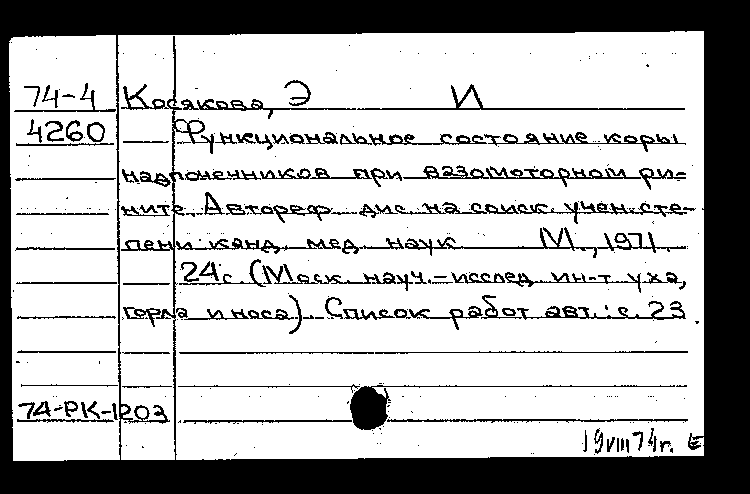 74-4 Косякова, Э И
4260 Функциональное состояние коры
надпочечников при вазомоторном ри-
ните. Автореф. дис. на соиск. учен. сте-
пени канд. мед. наук М., 1971.
24 с. (Моск. науч.-исслед. ин-т уха,
горла и носа). Список работ авт.: с. 23
74-РК-1203
19 VIII 74 г. Е